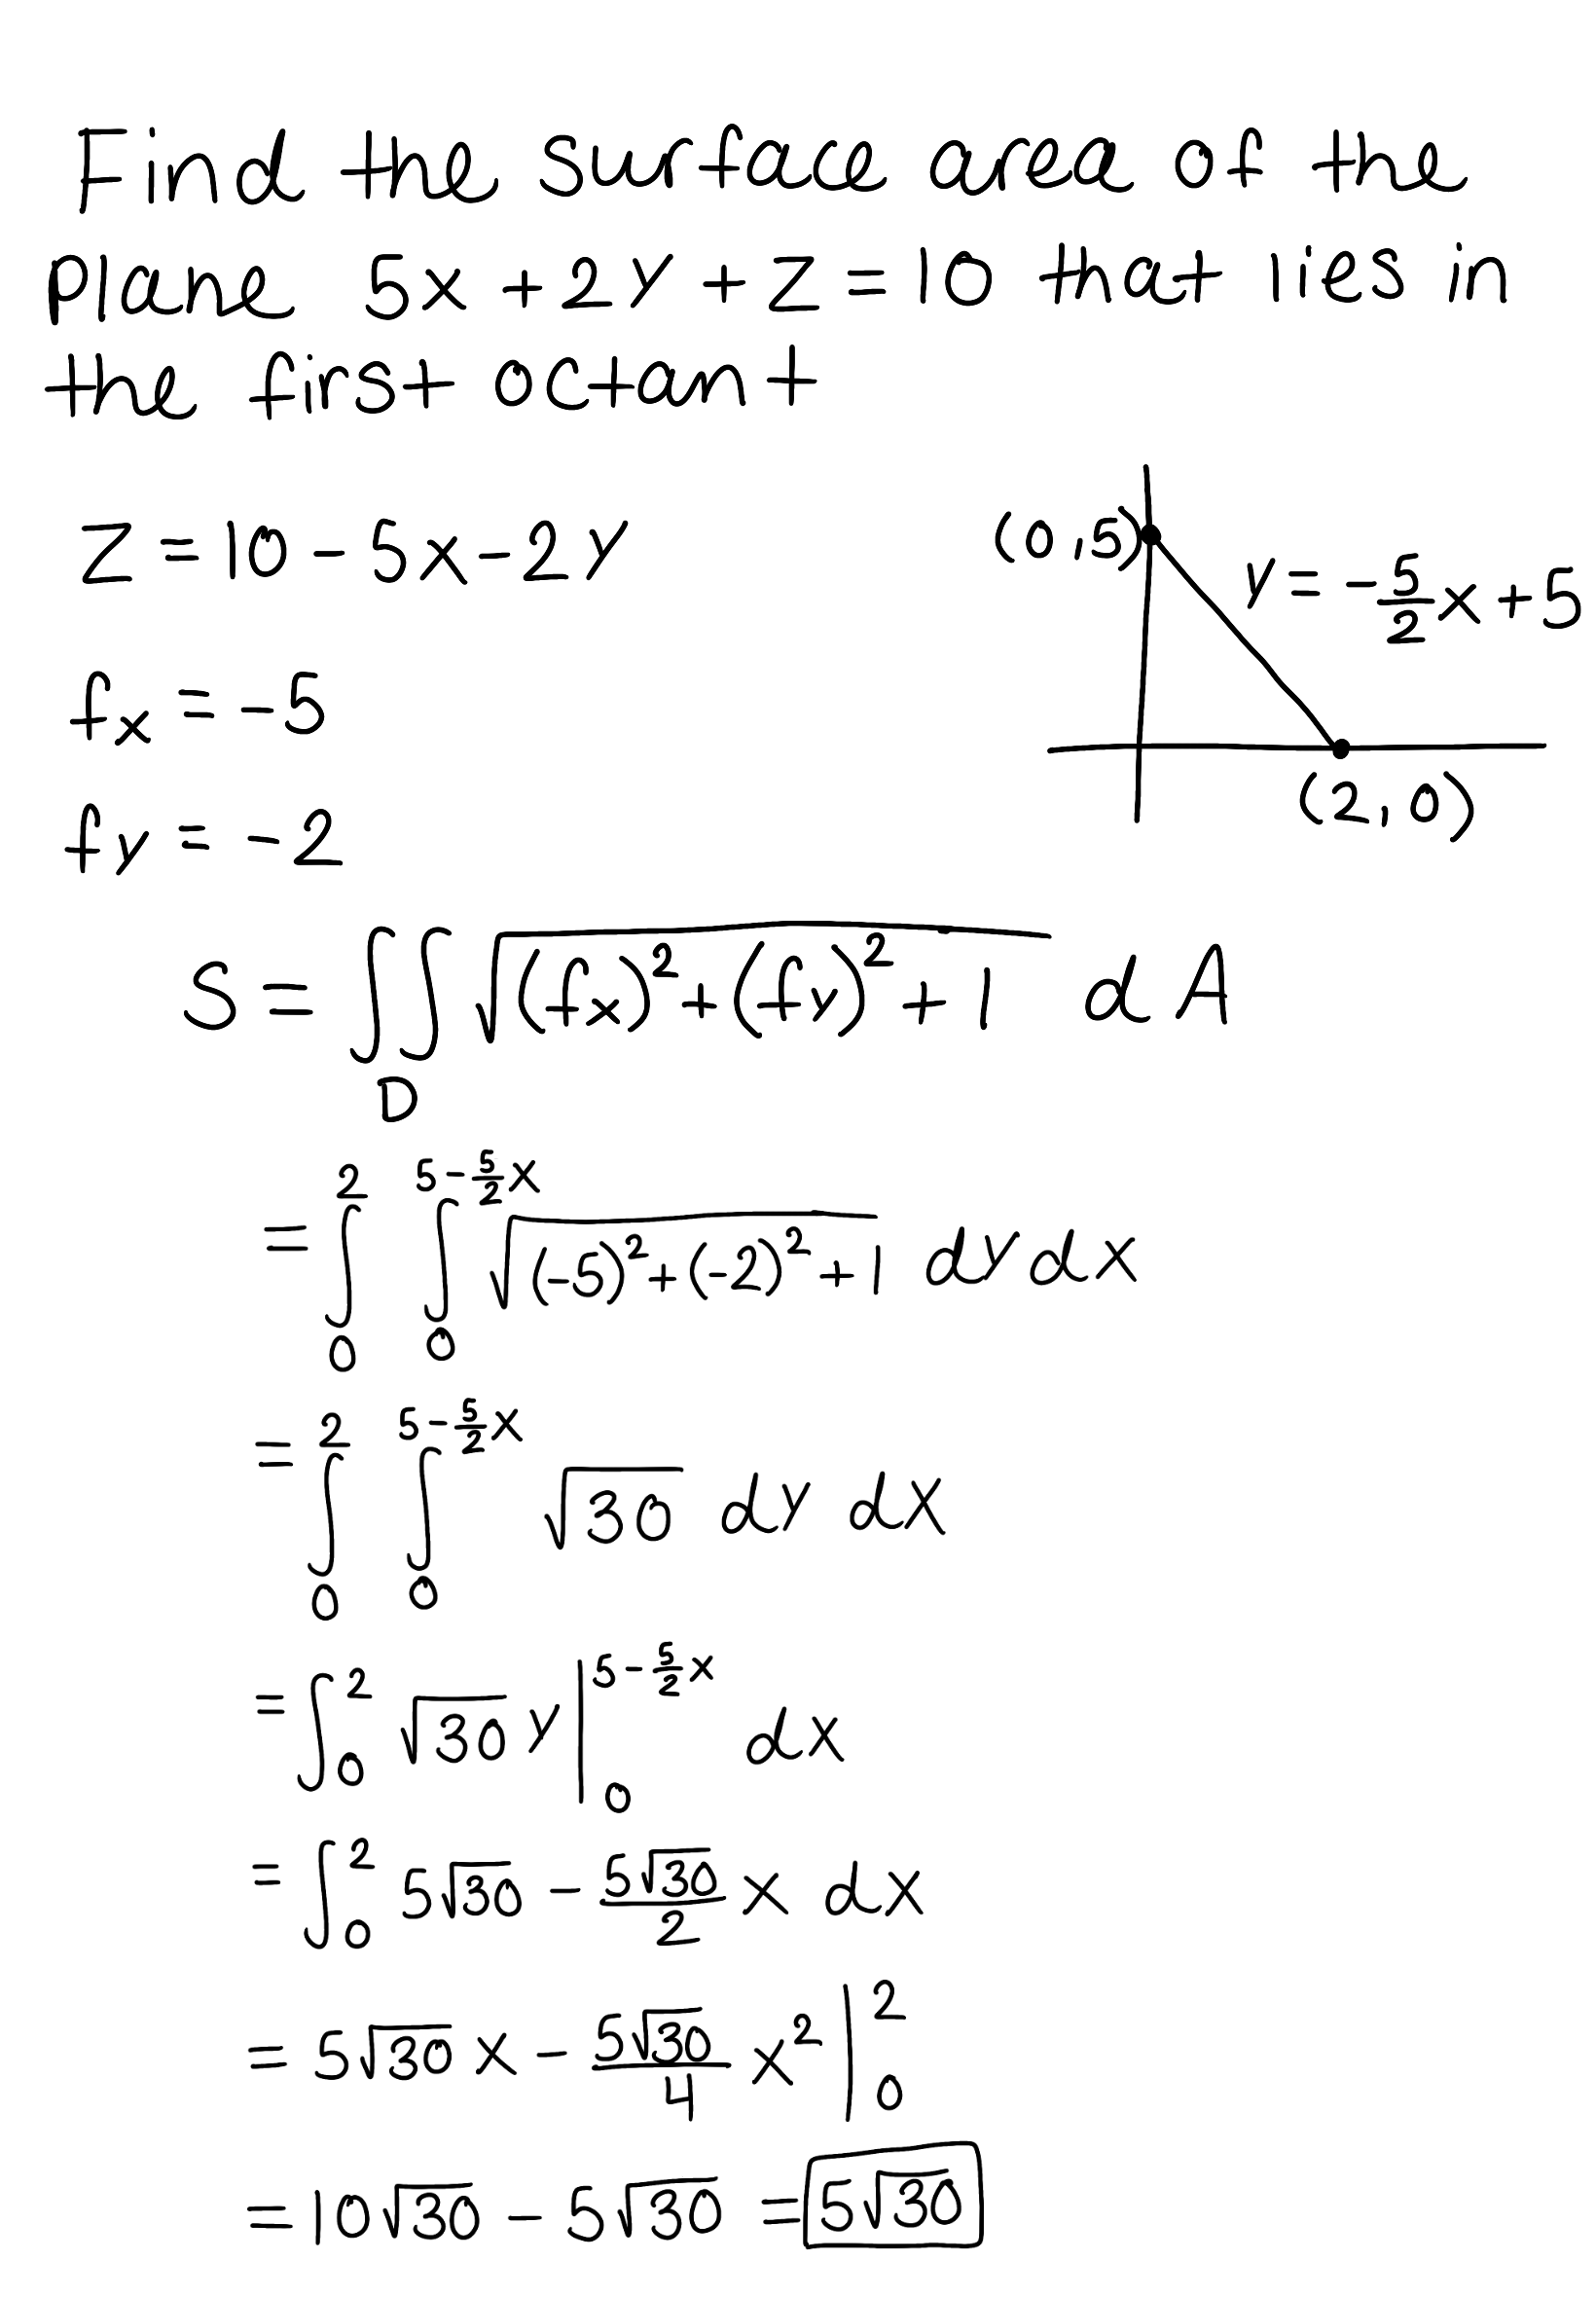 Find the surface area of the
plane 5x + 2y + z = 10 that lies in
the first octant
z = 10 - 5x - 2y
(0,5)
y = -5/2 x + 5
fx = -5
(2,0)
fy = -2
S = ∫∫_D √((fx)² + (fy)² + 1) dA
= ∫_0^2 ∫_0^(5 - 5/2 x) √((-5)² + (-2)² + 1) dy dx
= ∫_0^2 ∫_0^(5 - 5/2 x) √30 dy dx
= ∫_0^2 √30 y |_0^(5 - 5/2 x) dx
= ∫_0^2 5√30 - 5√30/2 x dx
= 5√30 x - 5√30/4 x² |_0^2
= 10√30 - 5√30 = 5√30